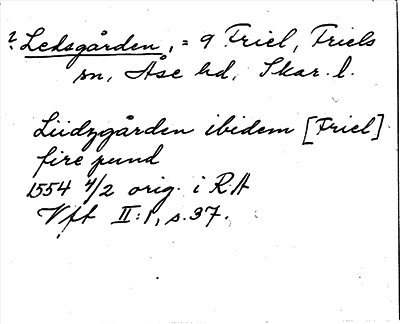 ? Ledsgården, = 9 Friel, Friels
sn, Åse hd, Skar. l.
Lüdzgården ibidem [Friel]
fire pund
1554 4/2 orig. i RA
Vft II:1, s. 37.